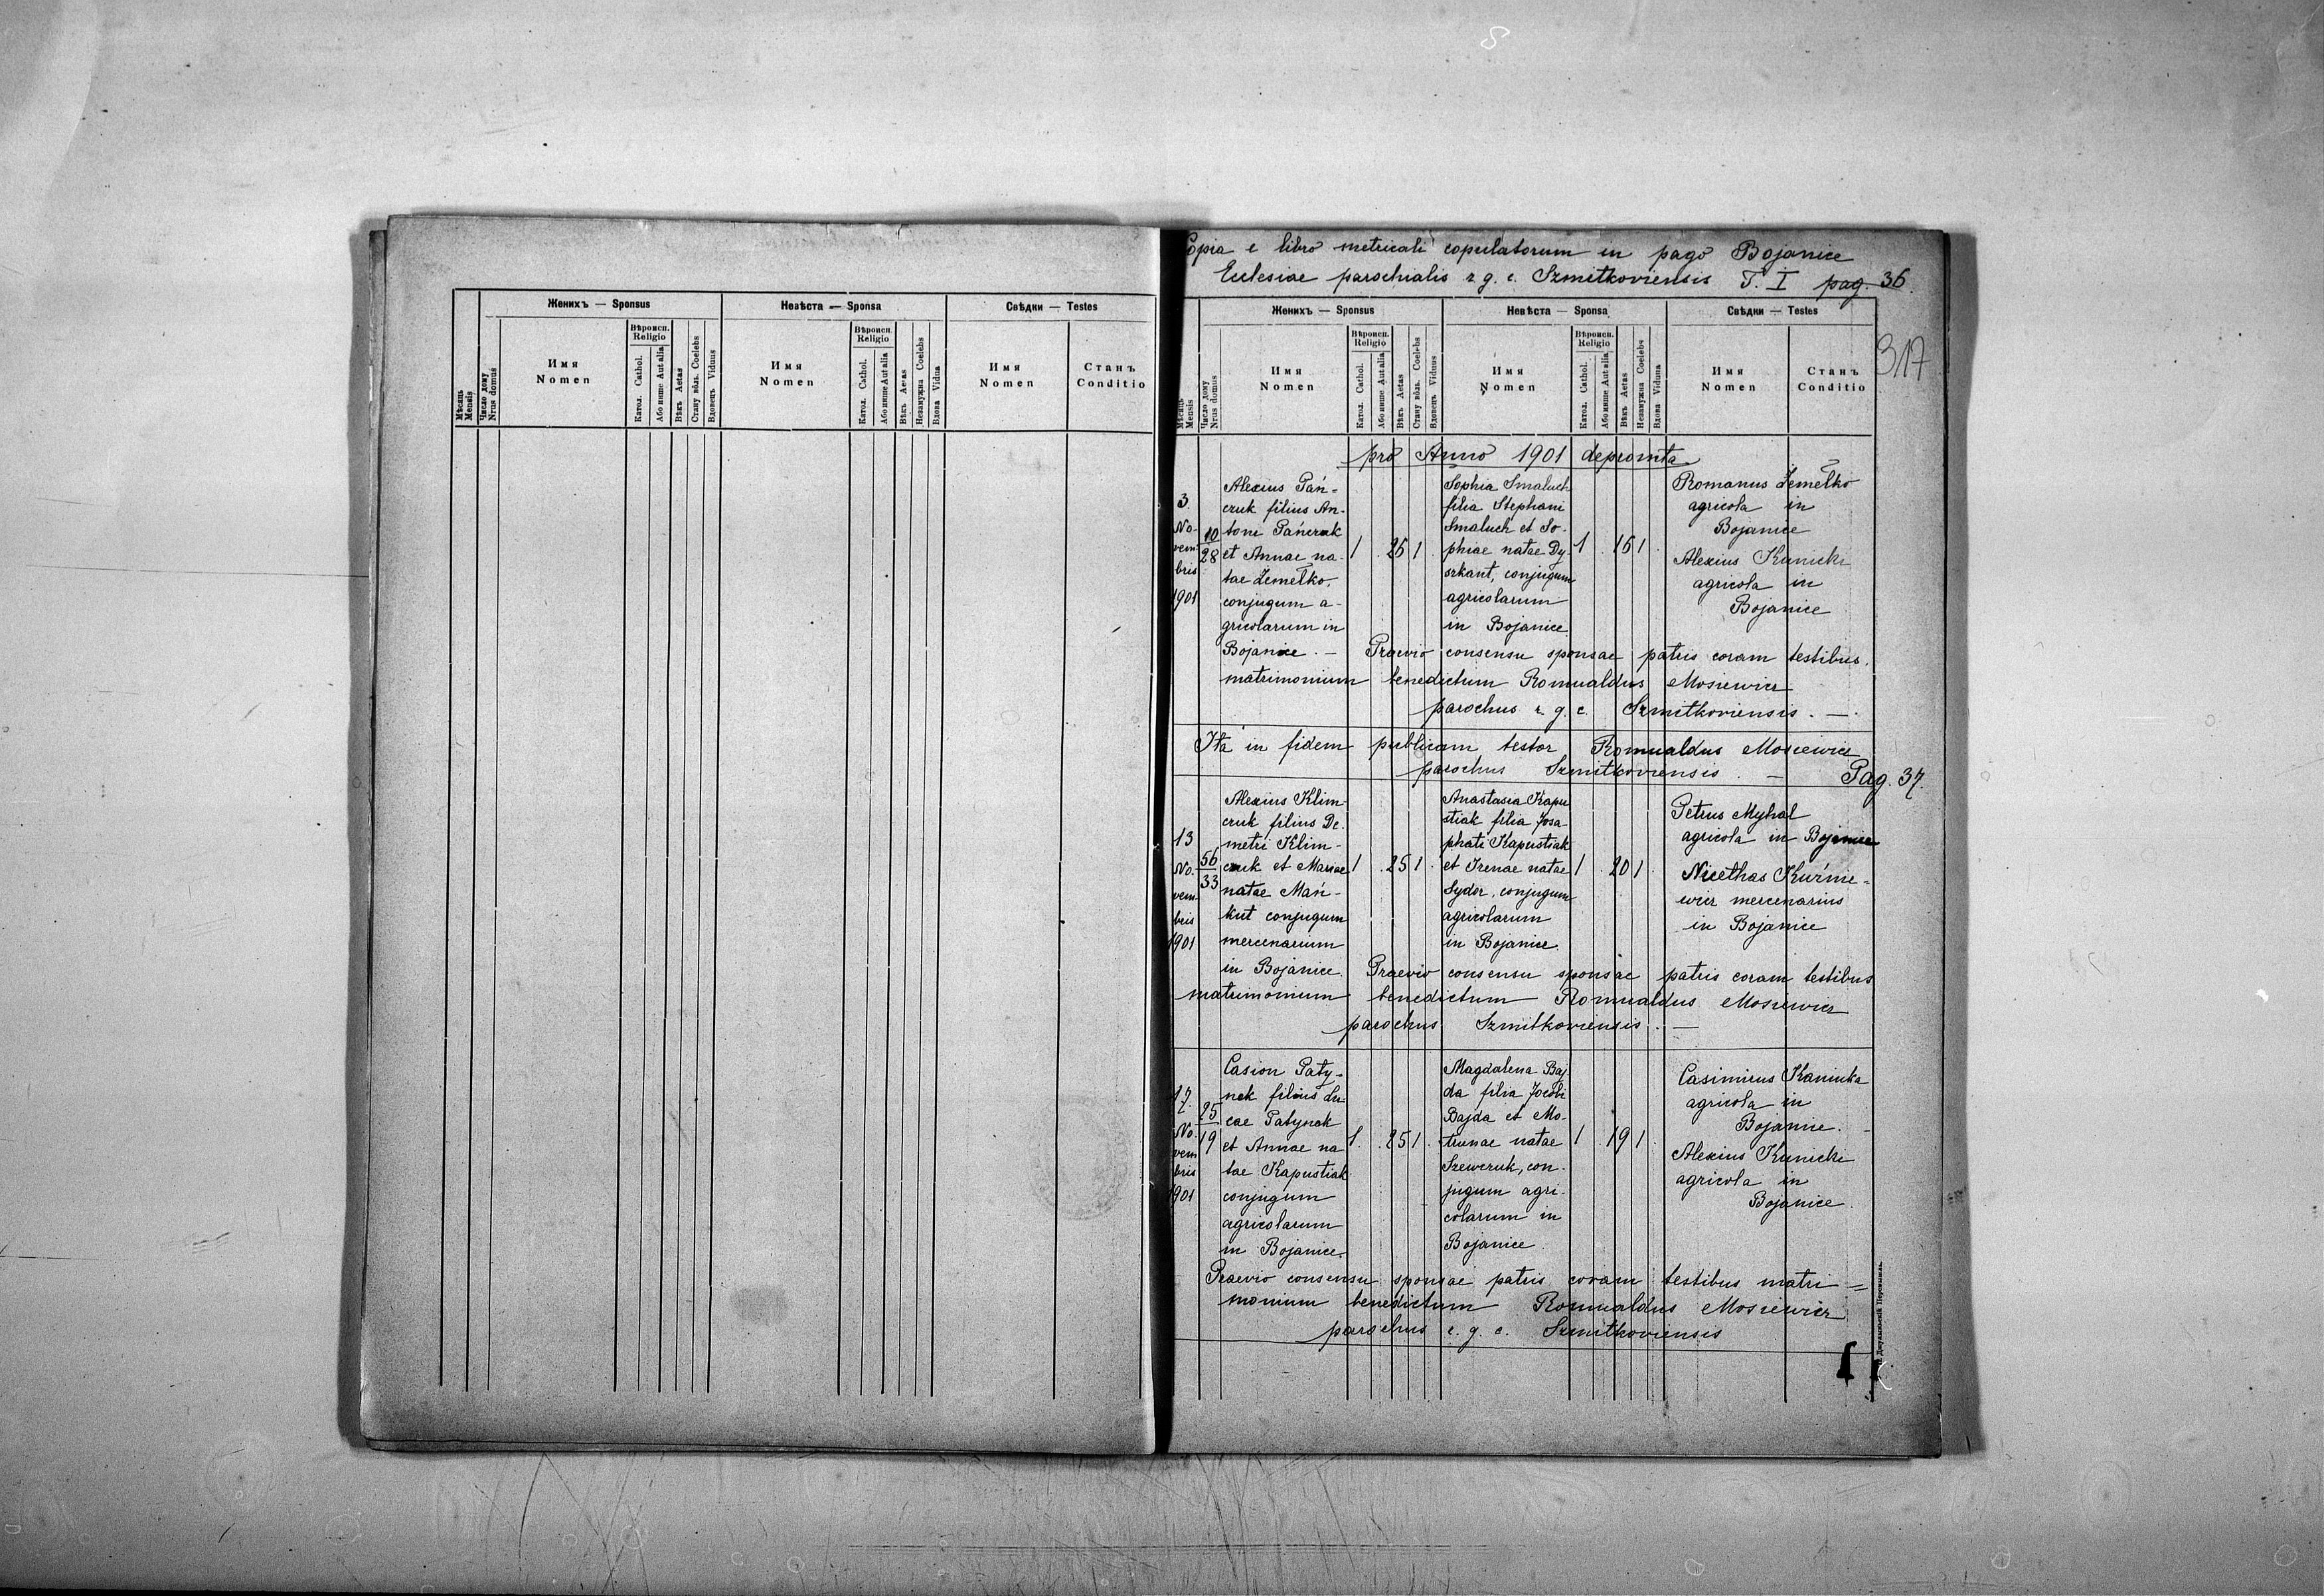 Женихъ — Sponsus
Невѣста — Sponsa
Свѣдки — Testes
Мѣсяць Mensis
Число дому Nrus domus
Имя Nomen
Вѣроисп. Religio
Катол. Cathol.
Або инше Aut alia
Вѣкъ Aetas
Стану вôль. Coelebs
Вдовець Viduus
Имя Nomen
Вѣроисп. Religio
Катол. Cathol.
Або инше Aut alia
Вѣкъ Aetas
Незамужна Coelebs
Вдова Vidua
Имя Nomen
Станъ Conditio
Copia e libro metricali copulatorum in pago Bojanice
Ecclesiae parochialis r. g. c. Szmitkoviensis T. I pag. 36.
317
Женихъ — Sponsus
Невѣста — Sponsa
Свѣдки — Testes
Мѣсяць Mensis
Число дому Nrus domus
Имя Nomen
Вѣроисп. Religio
Катол. Cathol.
Або инше Aut alia
Вѣкъ Aetas
Стану вôль. Coelebs
Вдовець Viduus
Имя Nomen
Вѣроисп. Religio
Катол. Cathol.
Або инше Aut alia
Вѣкъ Aetas
Незамужна Coelebs
Вдова Vidua
Имя Nomen
Станъ Conditio
pro Anno 1901 depromta
3.
No-
vem-
bris
1901
10
28
Alexius Pań-
czuk filius An-
toni Pańczuk
et Annae na-
tae Żemełko,
conjugum a-
gricolarum in
Bojanice. —
1 . 26 1 .
Sophia Smaluch
filia Stephani
Smaluch et So-
phiae natae Dy
szkant, conjugum
agricolarum
in Bojanice.
1 . 16 1 .
Romanus Żemełko
agricola in
Bojanice
Alexius Kunicki
agricola in
Bojanice
Praevio consensu sponsae patris coram testibus
matrimonium benedictum Romualdus Mosiewicz
parochus r. g. c. Szmitkoviensis. —
Ita in fidem publicam testor Romualdus Mosiewicz
parochus Szmitkoviensis. —
Pag. 37.
13
No.
vem-
bris
1901
56
33
Alexius Klim-
czuk filius De-
metri Klim-
czuk et Mariae
natae Mań-
kut conjugum
mercenarium
in Bojanice.
1 . 25 1 .
Anastasia Kapu
stiak filia Josa-
phati Kapustiak
et Irenae natae
Sydor, conjugum
agricolarum
in Bojanice.
1 . 20 1 .
Petrus Myhal
agricola in Bojanice
Nicethas Kuźnie-
wicz mercenarius
in Bojanice
Praevio consensu sponsae patris coram testibus
matrimonium benedictum Romualdus Mosiewicz
parochus Szmitkoviensis. —
17.
No.
vem
bris
1901
25
19
Casion Paty-
nok filius Lu-
cae Patynok
et Annae na
tae Kapustiak
conjugum
agricolarum
in Bojanice.
1 . 25 1 .
Magdalena Baj
da filia Jocobi
Bajda et Mo-
trunae natae
Szewczuk, con-
jugum agri-
colarum in
Bojanice
1 . 19 1 .
Casimirus Kaniuka
agricola in
Bojanice. -
Alexius Kunicki
agricola in
Bojanice.
Praevio consensu sponsae patris coram testibus matri=
monium benedictum Romualdus Mosiewicz
parochus r. g. c. Szmitkoviensis